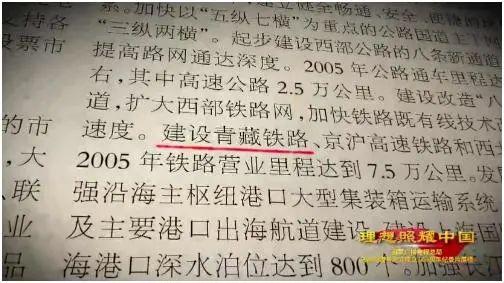 系。加快以“五纵七横”为重点的公路国道主
支持 “三纵两横”。起步建设西部公路的八条新通道
各 提高路网通达深度。2005年公路通车里程
股票市 右，其中高速公路2.5万公里。建设改造“八
道，扩大西部铁路网，加快铁路既有线技术改
的市 速度。建设青藏铁路、京沪高速铁路和西
，大 2005年铁路营业里程达到7.5万公里。发
、联 强沿海主枢纽港口大型集装箱运输系统
业 及主要港口出海航道建设，建设
品 海港口深水泊位达到800个。加强长
理想照耀中国